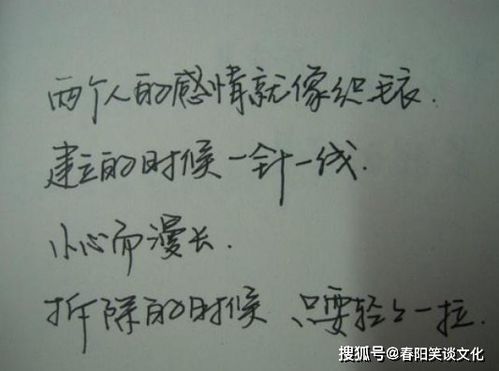 两个人的感情就像织毛衣.
建立的时候一针一线.
小心而漫长.
拆除的时候 只要轻轻一拉.
搜狐号@春阳笑谈文化